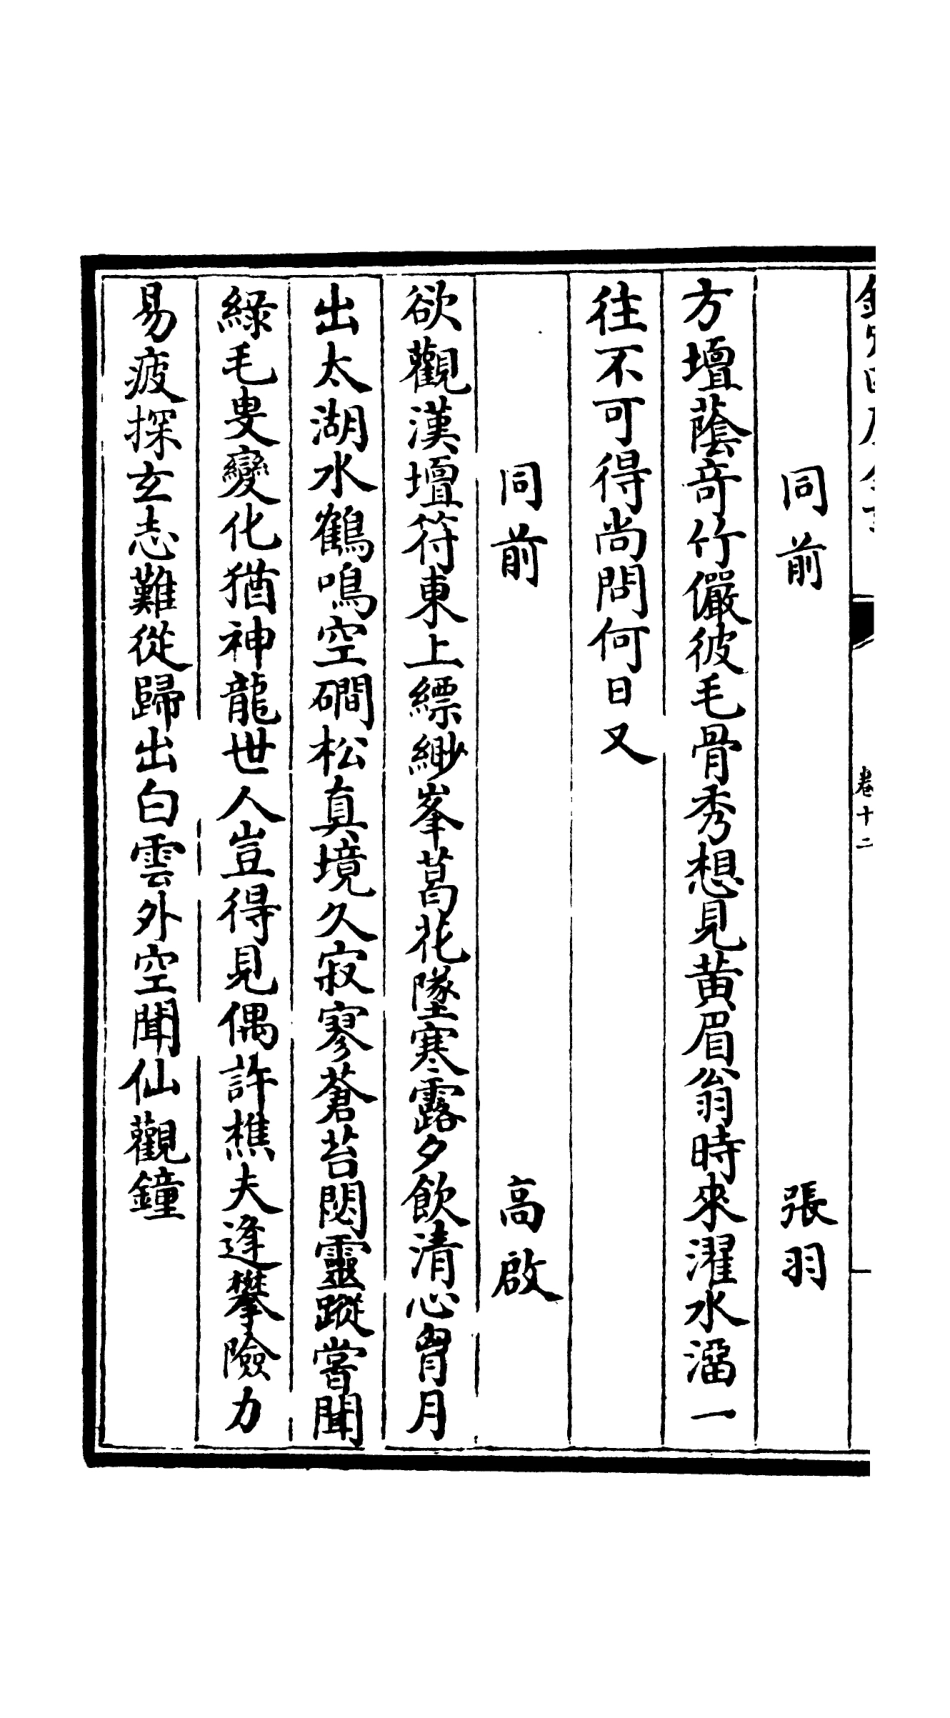 欽定四庫全書
卷十二
同前 張羽
方壇蔭竒竹儼彼毛骨秀想見黄眉翁時來濯水溜一
往不可得尚問何日又
同前 高啟
欲觀漢壇符東上縹緲峯葛花墜寒露夕飲清心胷月
出太湖水鶴鳴空磵松真境久寂寥蒼苔閟靈蹤嘗聞
綠毛叟變化猶神龍世人豈得見偶許樵夫逢攀險力
易疲探玄志難從歸出白雲外空聞仙觀鐘